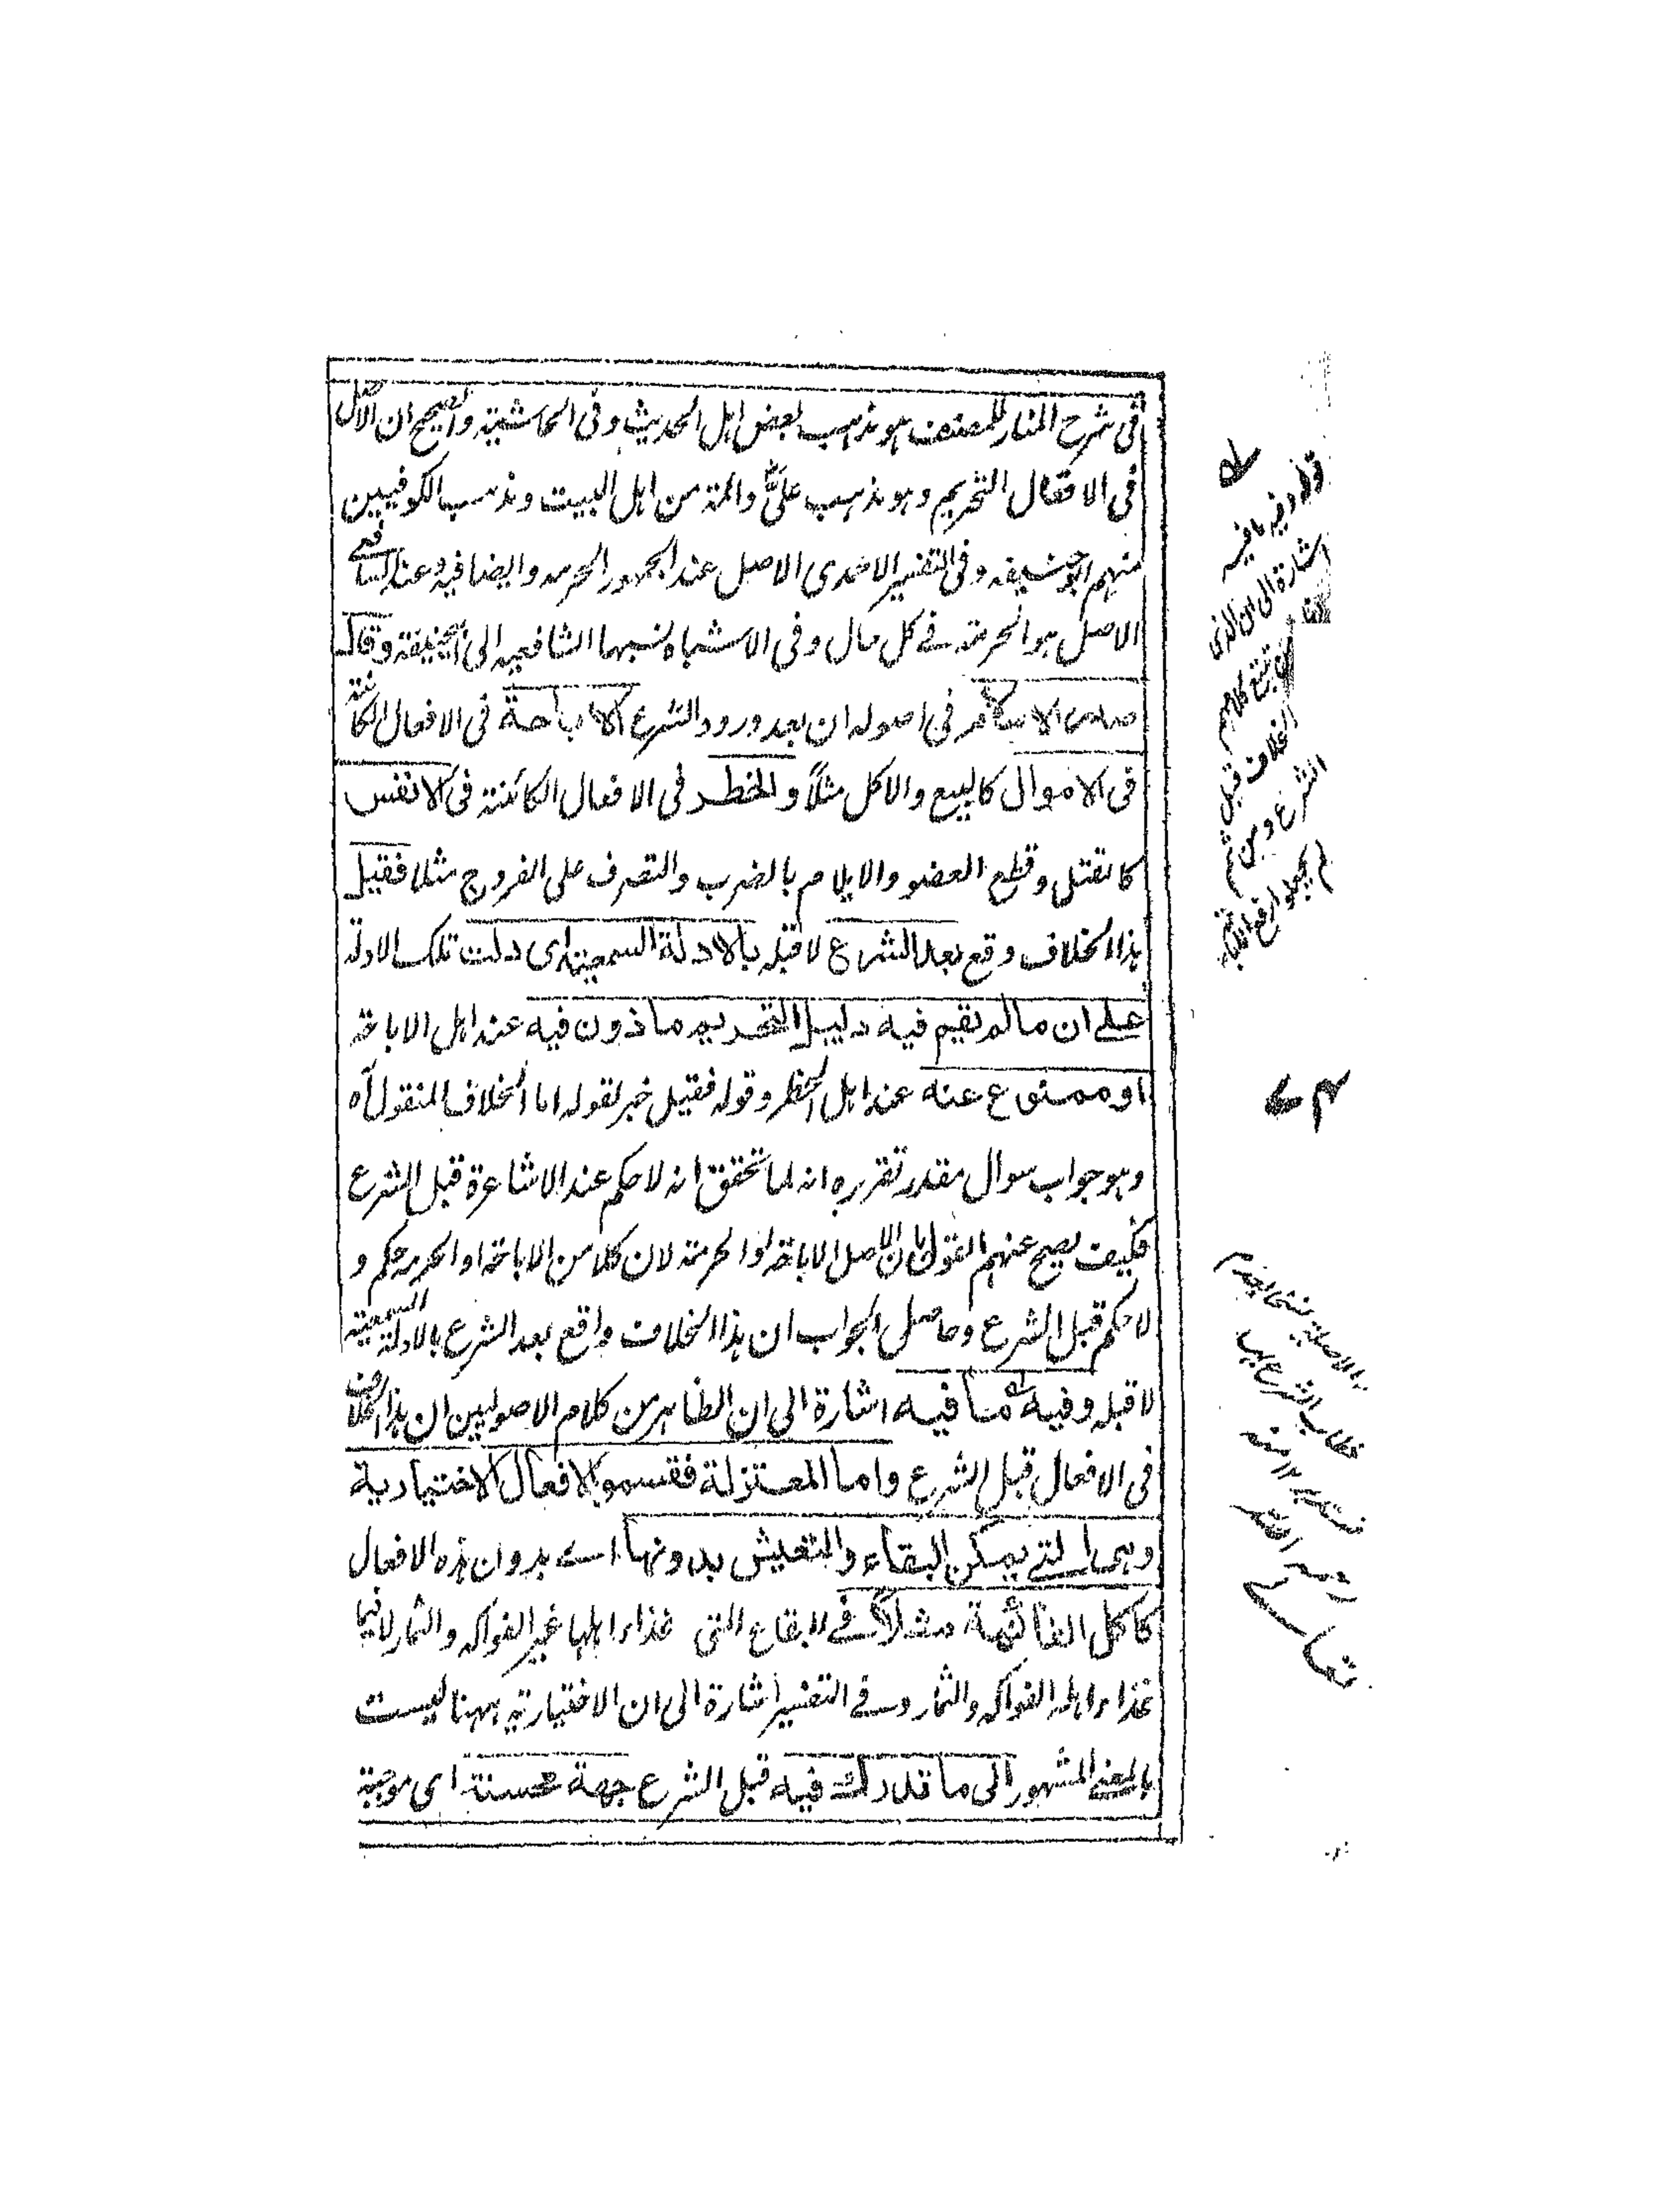 فى شرح المنار للمصنف هو مذهب بعض اهل الحديث وفى الحاشية والصحيح ان الاصل
فى الافعال التحريم وهو مذهب على رض وائمة من اهل البيت ومذهب الكوفيين
منهم ابو حنيفه وفى التفسير الاحمدى الاصل عند الجمهور الحرمه وايضا فيه وعند الشافعى
الاصل هو الحرمة فے كل حال وفى الاشباه نسبها الشافعيه الى ابيحنيفة وقال
صدر الاسلام فى اصوله ان بعد ورود الشرع الاباحة فى الافعال الكائنة
فى الاموال كالبيع والاكل مثلاً والخطر فى الافعال الكائنة فى الانفس
كالقتل وقطع العضو والايلام بالضرب والتصرف على الفروج مثلا فقيل
هذا الخلاف وقع بعد الشرع لا قبله بالادلة السمعية اى دلت تلك الادلة
على ان ما لم يقيم فيه دليل التحريم ماذون فيه عند اهل الاباحة
او ممنوع عنه عند اهل الحظر وقوله فقيل خبر لقوله اما الخلاف المنقول آه
وهو جواب سوال مقدر تقريره انه لما تحقق انه لا حكم عند الاشاعرة قبل الشرع
فكيف يصح عنهم القول بان الاصل الاباحة او الحرمة لان كلا من الاباحة او الحرمة حكم و
لا حكم قبل الشرع وحاصل الجواب ان هذا الخلاف واقع بعد الشرع بالادلة السمعية
لا قبله وفيه ما فيه اشارة الى ان الظاهر من كلام الاصوليين ان هذا الخلاف
فى الافعال قبل الشرع واما المعتزلة فقسموا الافعال الاختيارية
وهى التے يمكن البقاء والتعيش بدونها اے بدون هذه الافعال
كاكل الفاكهة مثلاً فے البقاع التى غذاء اهلها غير الفواكه والثمار لا فيما
غذاء اهله الفواكه والثمار وفے التفسير اشارة الى ان الاختيارية ههنا ليست
بالمعنے المشهور الى ما تدرك فيه قبل الشرع جهة محسنة اى موجبة
قوله وفيه ما فيه
اشارة الى ان الذى
كلامهم
الخلاف قبل
الشرع ومن ثم
لم يجعلوا رفع